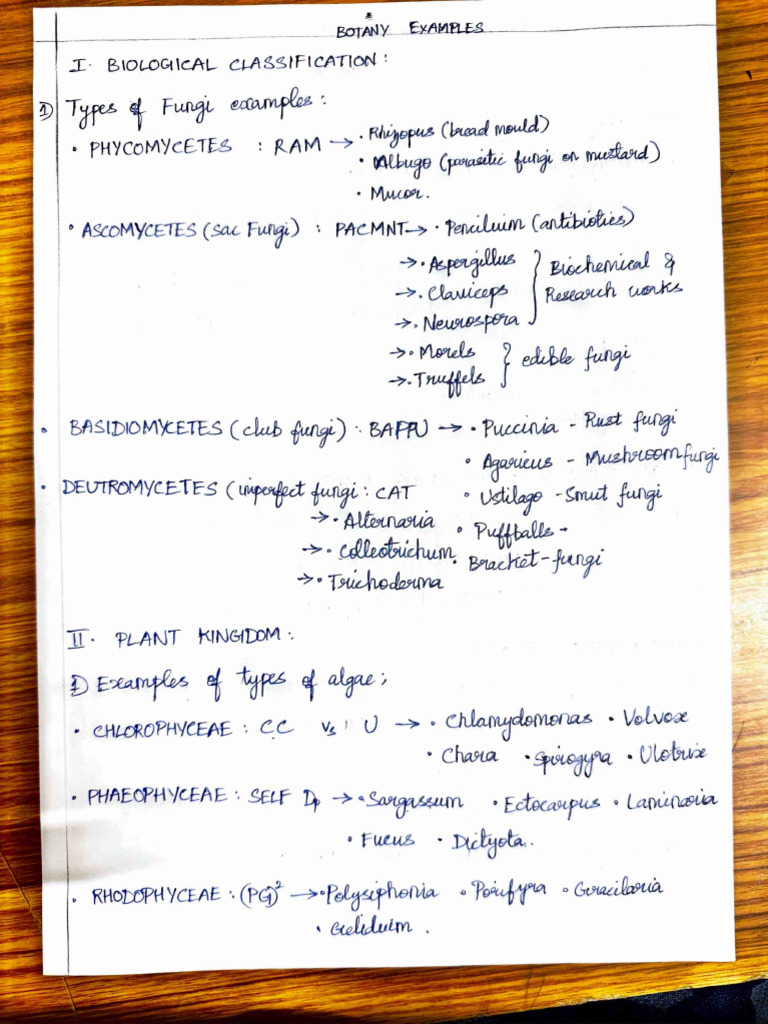 BOTANY EXAMPLES
I. BIOLOGICAL CLASSIFICATION:
1) Types of Fungi examples:
• PHYCOMYCETES : RAM → • Rhizopus (bread mould)
• Albugo (parasitic fungi on mustard)
• Mucor.
• ASCOMYCETES (sac Fungi) : PACMNT → • Penciluim (antibiotics)
→ • Aspergillus
→ • Claviceps
→ • Neurospora
} Biochemical &
Research works
→ • Morels
→ • Truffels
} edible fungi
• BASIDIOMYCETES (club fungi) : BAPPU → • Puccinia - Rust fungi
• Agaricus - Mushroom fungi
• Ustilago - Smut fungi
• Puffballs -
• Bracket-fungi
• DEUTROMYCETES (imperfect fungi : CAT
→ • Alternaria
→ • Colleotrichum
→ • Trichoderma
II. PLANT KINGIDOM:
1) Examples of types of algae;
• CHLOROPHYCEAE : CC Vs U → • Chlamydomonas • Volvox
• Chara • Spirogyra • Ulotrix
• PHAEOPHYCEAE : SELF Dp → • Sargassum • Ectocarpus • Laminaria
• Fucus • Dictyota.
• RHODOPHYCEAE : (PG)² → • Polysiphonia • Porifyra • Gracilaria
• Geliduim.